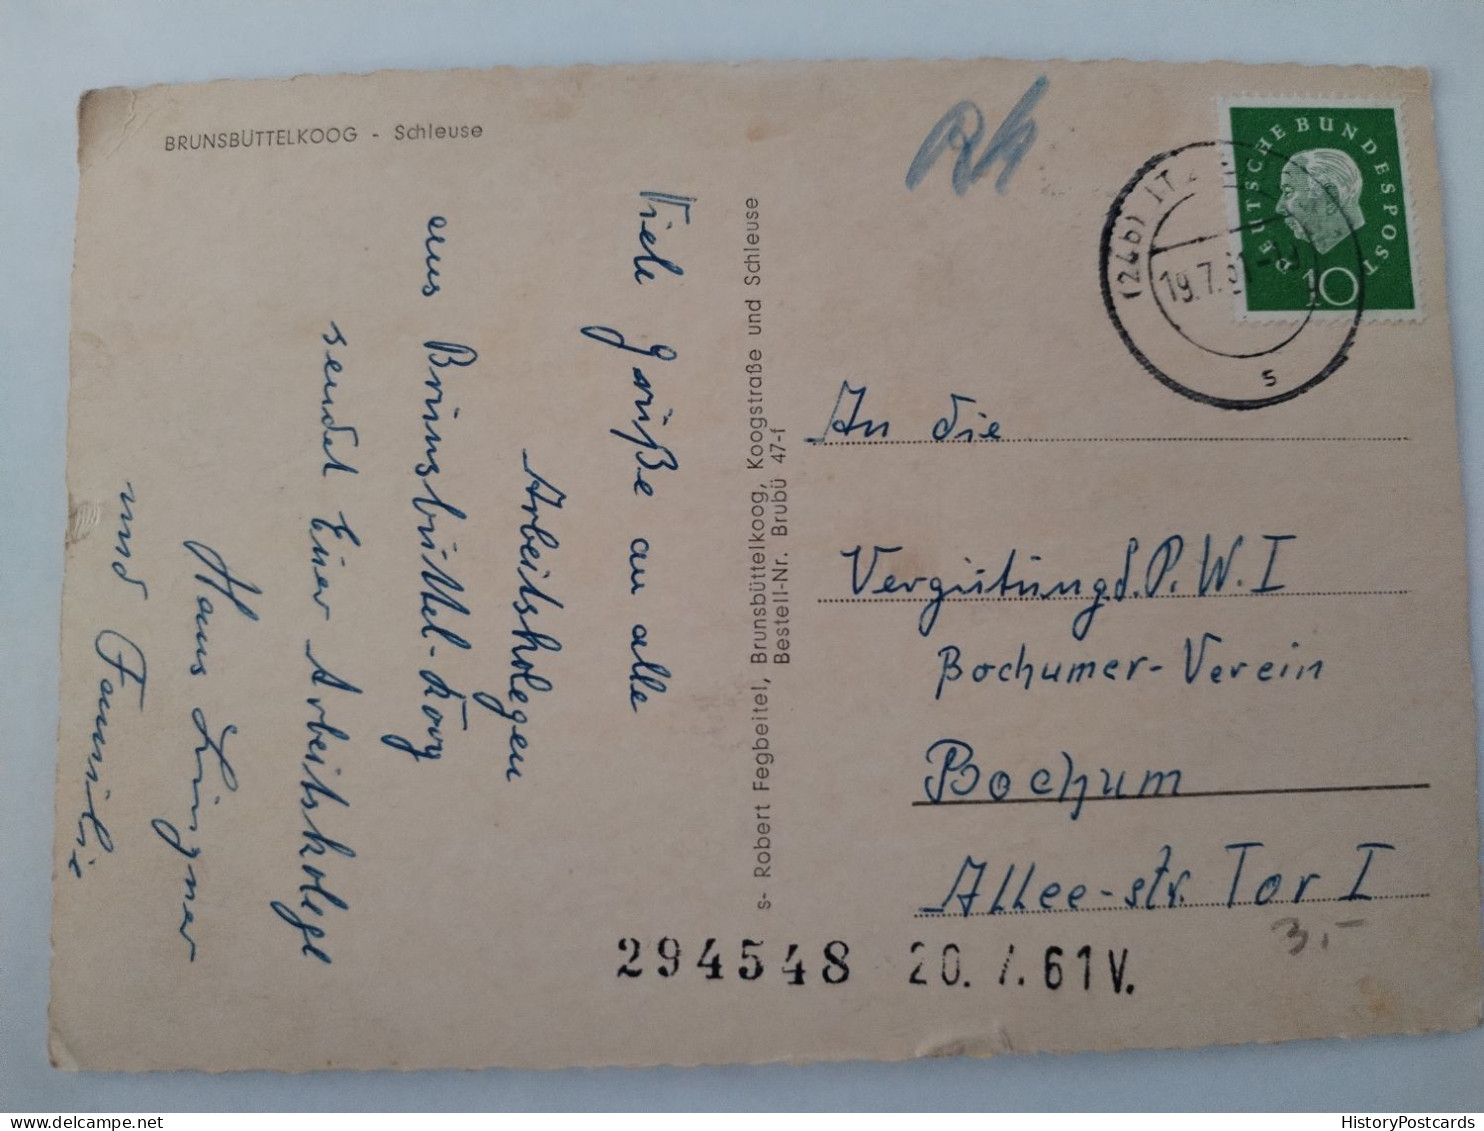 BRUNSBÜTTELKOOG - Schleuse
Viele Grüße an alle
Arbeitskolegen
aus Brunsbüttel-Koog
sendet Euer Arbeitskolege
Hans Lingner
und Familie
s- Robert Fegbeitel, Brunsbüttelkoog, Koogstraße und Schleuse
Bestell-Nr. Brubü 47-f
DEUTSCHE BUNDESPOST
10
(24b) IT
19.7.61-19
s
An die
Vergütung d. P. W. I
Bochumer-Verein
Bochum
Allee-str. Tor I
3,-
294548 20. 7. 61 V.
HistoryPostcards